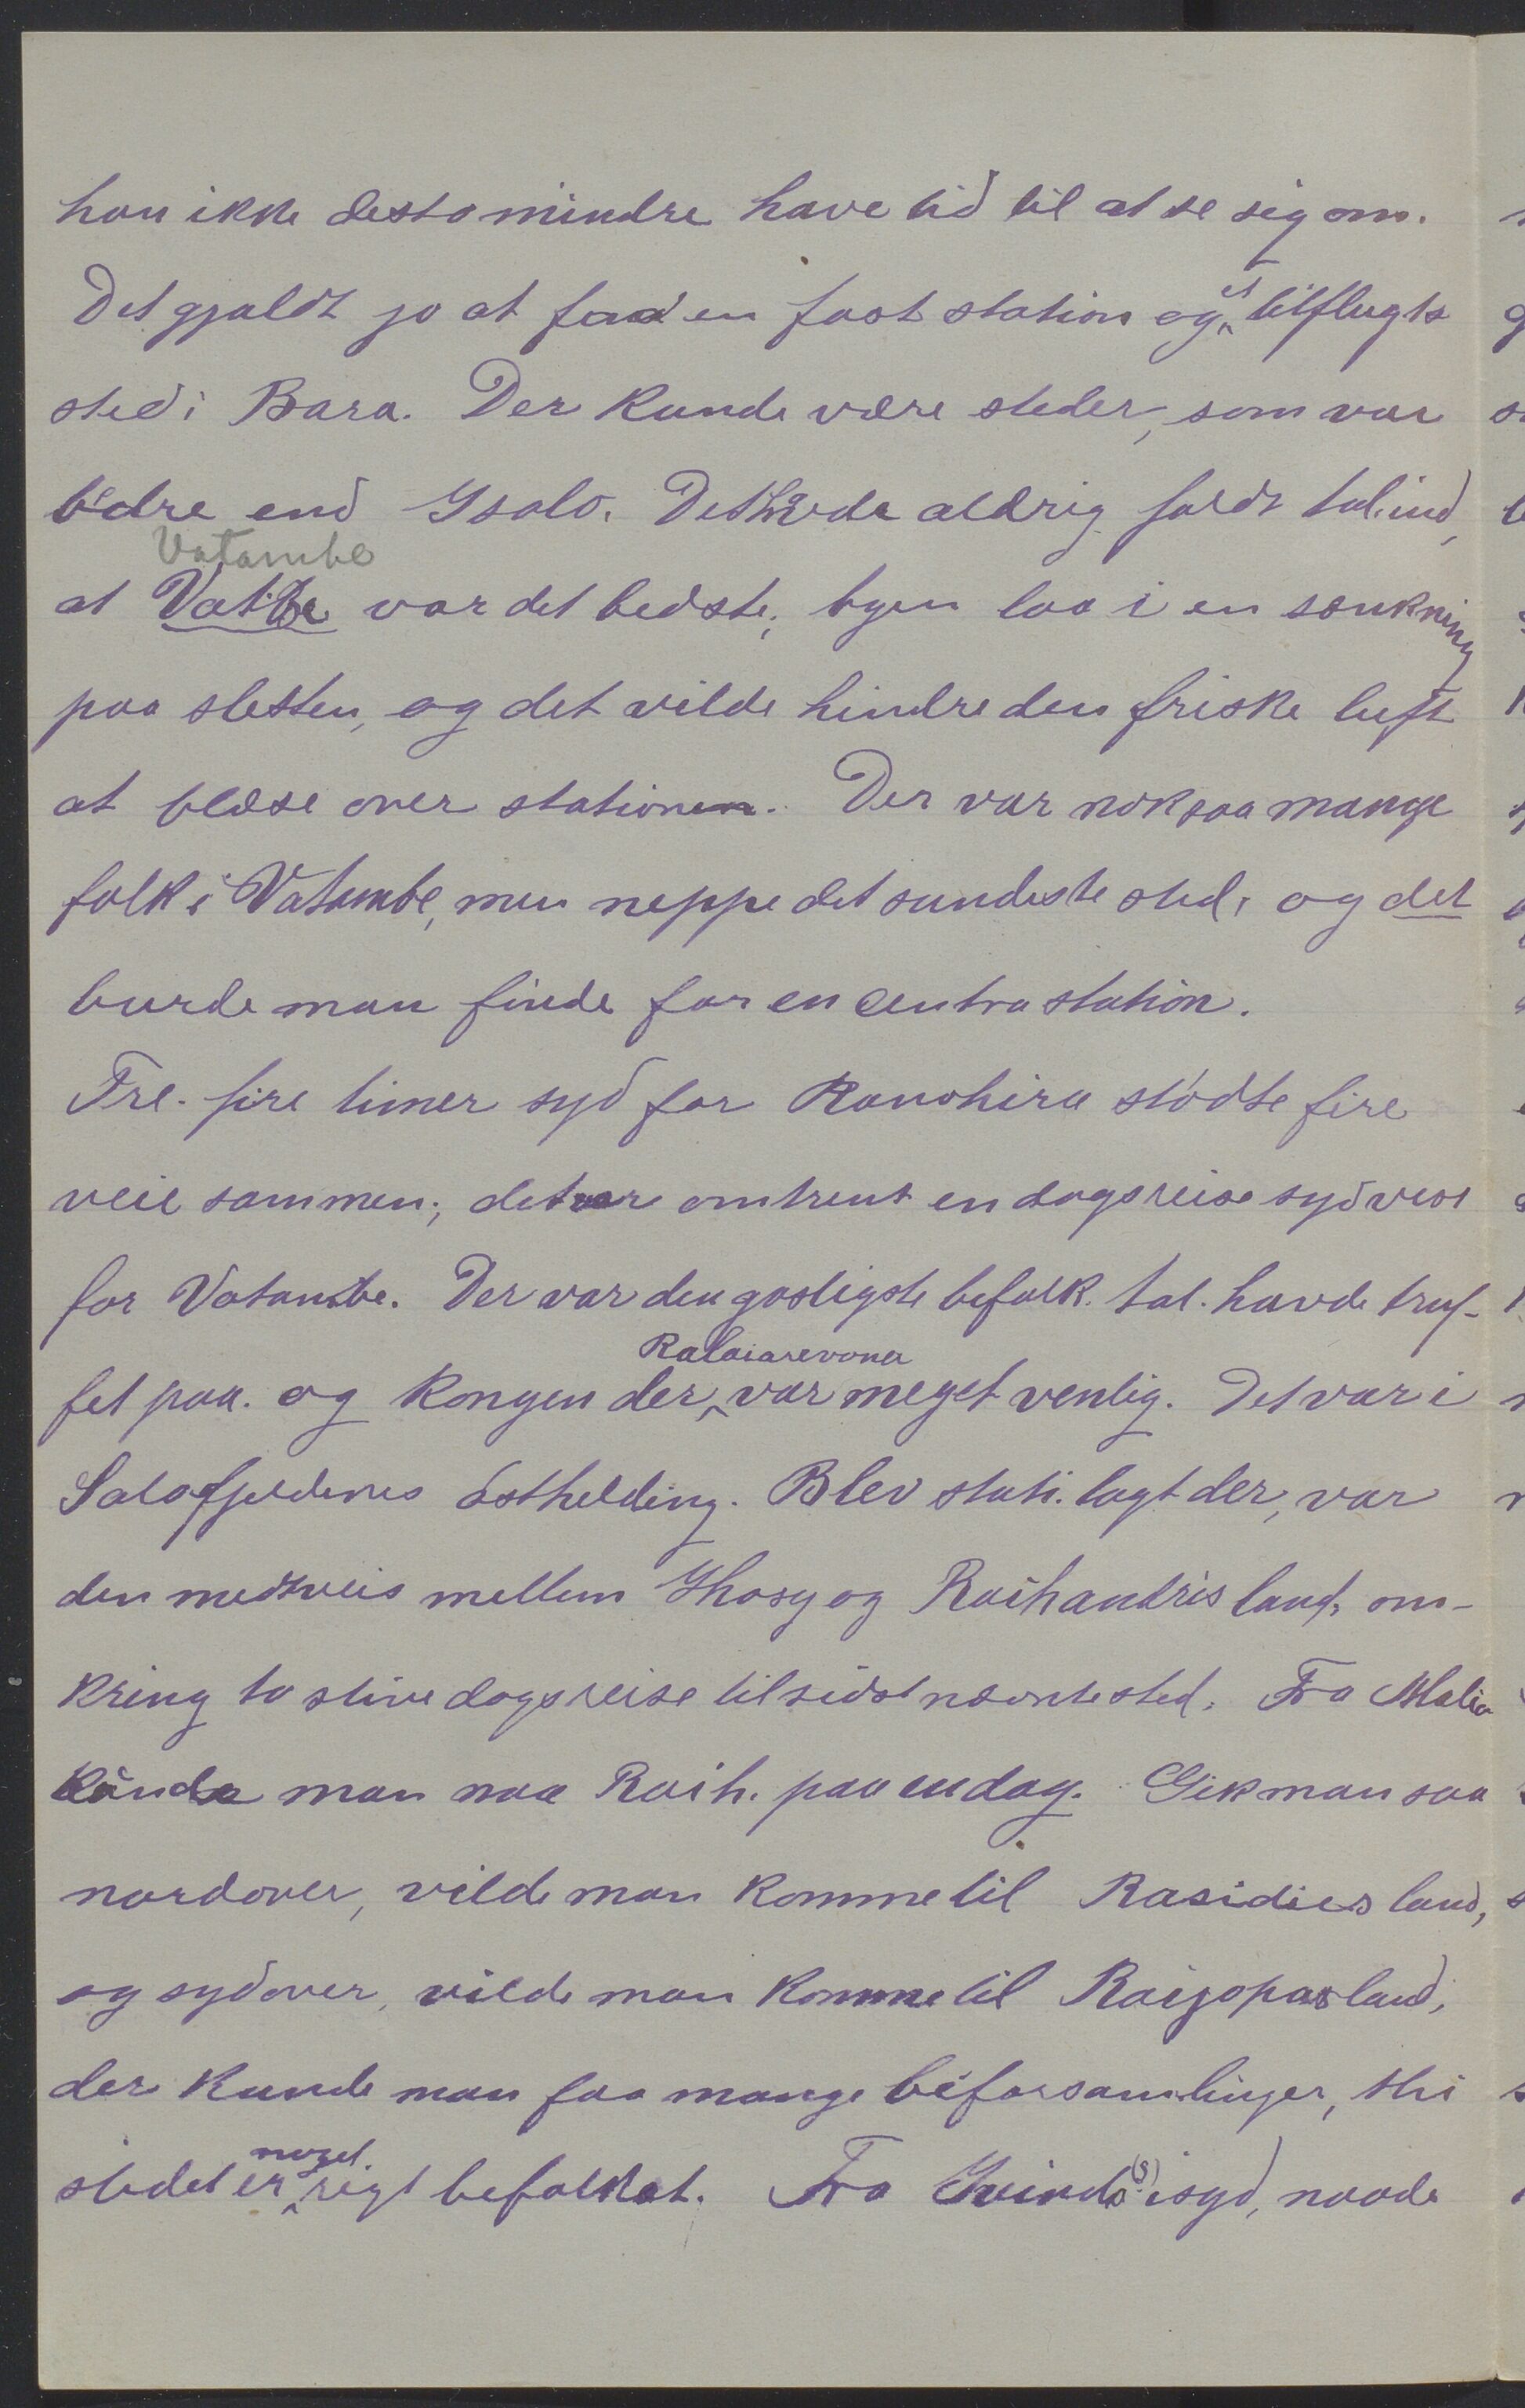 han ikke desto mindre have tid til at se sig om.
Det gjaldt jo at faa en fast station og et tilflugts
sted i Bara. Der kunde være steder, som var
bedre end Isalo. Det havde aldrig faldt tal. ind,
Vatambe
at Vatbe var det bedste; byen laa i en sænkning
paa sletten, og det vilde hindre den friske luft
at blæse over stationen. Der var nok saa mange
folk i Vatambe, men neppe det sundeste sted, og det
burde man finde for en centra station.
Tre-fire timer syd for Ranohira stödte fire
veie sammen; det var omtrent en dagsreise sydvest
for Vatambe. Der var den gosligste befolk. tal. havde truf-
fet paa. og kongen der Ralaiarevona var meget venlig. Det var i
Salofjeldenes östhelding. Blev stati. lagt der, var
den midtveis mellem Ihosy og Raihandris land, om-
kring to stive dagsreise til sidst nævnte sted. Fra Malio
kunde man naa Raih. paa en dag. Gik man saa
nordover, vilde man komme til Rasidies land,
og sydover, vilde man komme til Raijopas land,
der kunde man faa mange biforsamlinger, thi
stedet er meget rigt befolket. Fra (s) isyd, naade